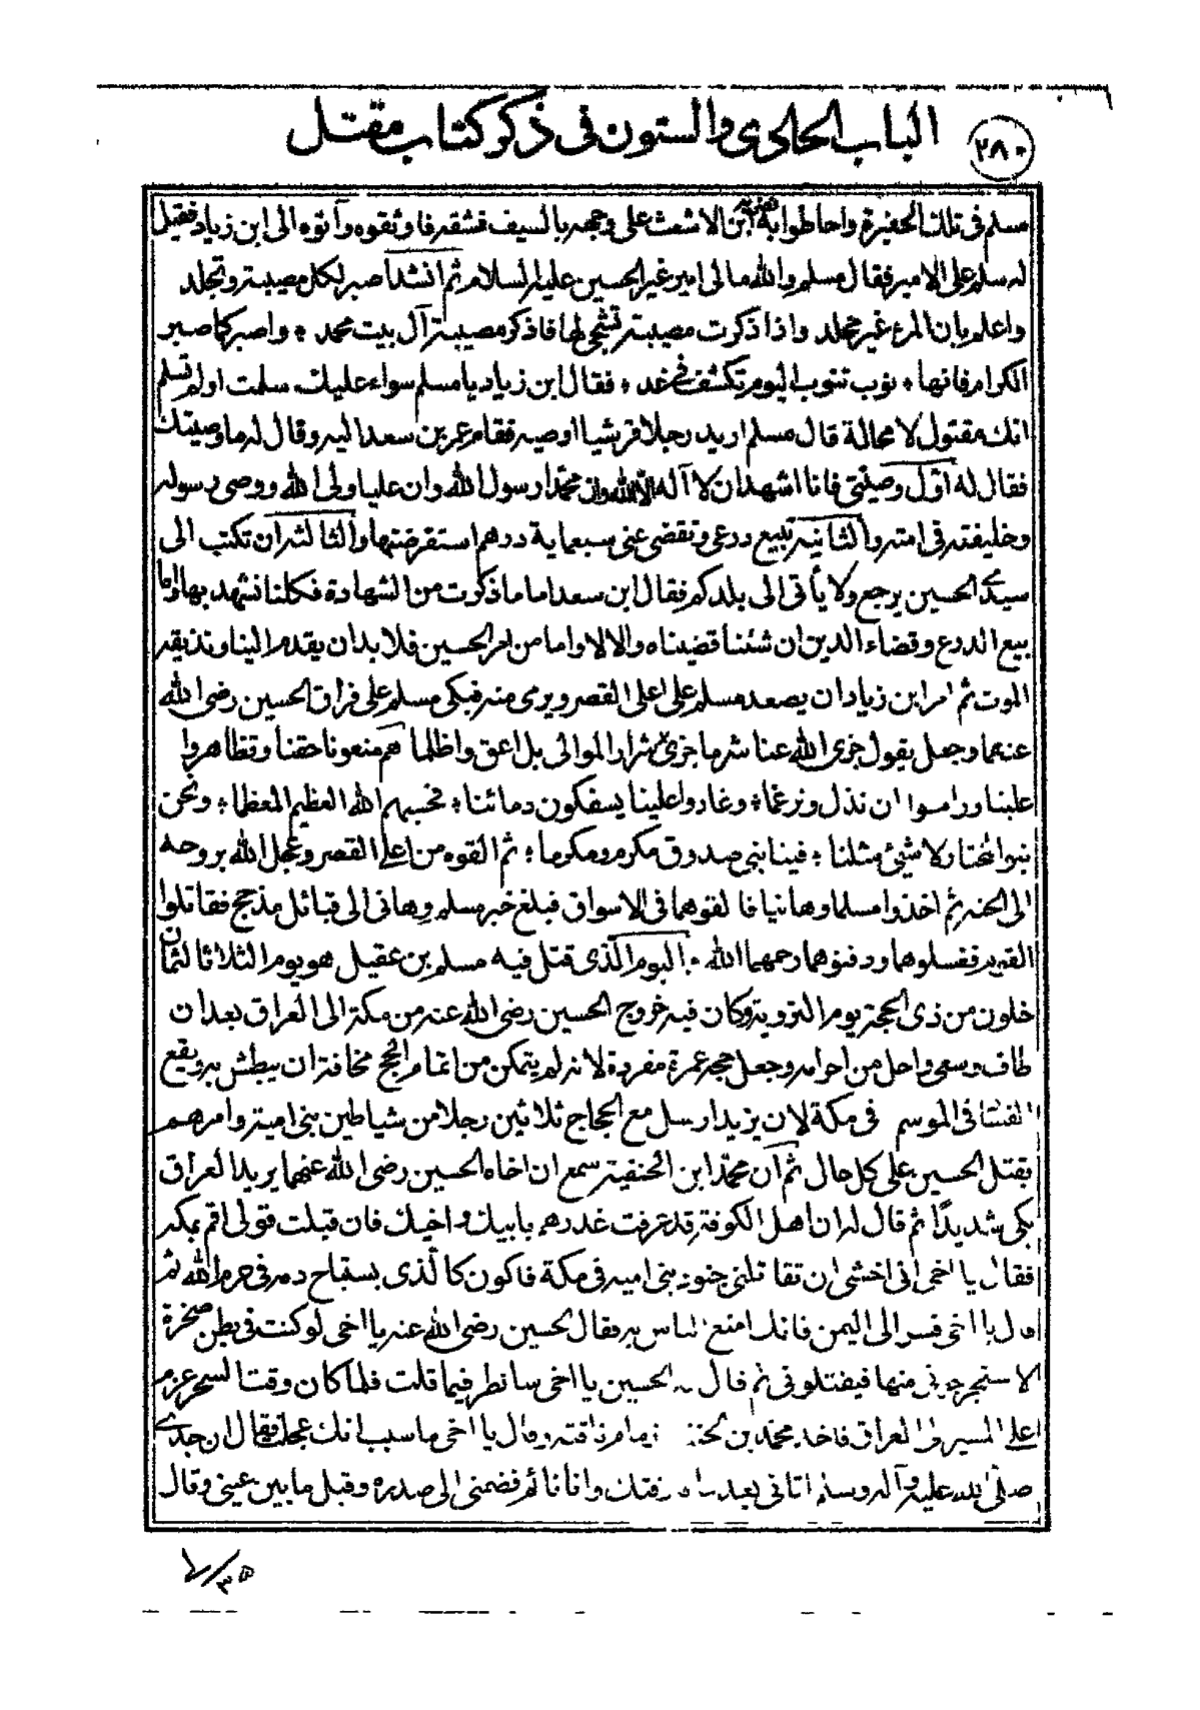 الباب الحادى والستون فى ذكر كتاب مقتل
٢٨٠
مسلم فى تلك الحفيرة واحاطوا به فضربه ابن الاشعث على وجهه بالسيف فشقه فاوثقوه وآتوه الى ابن زياد فقيل
له سلم على الامير فقال مسلم والله مالى امير غير الحسين عليه السلام ثم انشد اصبر لكل مصيبة وتجلد
واعلم بان المرء غير مخلد واذا ذكرت مصيبة تشجى لها فاذكر مصيبة آل بيت محمد * واصبر كما صبر
الكرام فانها * نوب تنوب اليوم تكشف فى غد * فقال ابن زياد يا مسلم سواء عليك سلمت او لم تسلم
انك مقتول لا محالة قال مسلم اريد رجلا قرشيا اوصيه فقام عمر بن سعد اليه وقال له ما وصيتك
فقال له اول وصيتى فانا اشهد ان لا آله الا الله وان محمدا رسول الله وان عليا ولى الله ووصى رسوله
وخليفته فى امته والثانية تبيع درعى وتقضى عنى سبعماية درهم استقرضتها والثالثة ان تكتب الى
سيدى الحسين يرجع ولا يأتى الى بلدكم فقال ابن سعد اما ما ذكرت من الشهادة فكلنا نشهد بها واما
بيع الدرع وقضاء الدين ان شئنا قضيناه والا لا واما من امر الحسين فلا بد ان يقدم الينا ونذيقه
الموت ثم امر ابن زياد ان يصعد مسلم على اعلى القصر ويرمى منه فبكى مسلم على فراق الحسين رضى الله
عنهما وجعل يقول جزى الله عنا شر ما جزى شرار الموالى بل اعق واظلما هم منعونا حقنا وتظاهروا
علينا وراموا ان نذل ونرغما * وغاروا علينا يسفكون دمائنا * فحسبهم الله العظيم المعظما * ونحن
بنوا المختار لا شيئ مثلنا * فينا نبى صدوق مكرم ومكرما * ثم القوه من اعلى القصر وعجل الله بروحه
الى الجنة ثم اخذوا مسلما وهانيا فالقوهما فى الاسواق فبلغ خبر مسلم وهانى الى قبائل مذحج فقاتلوا
القوم فغسلوهما ودفنوهما رحمهما الله * اليوم الذى قتل فيه مسلم بن عقيل هو يوم الثلاثا لثمان
خلون من ذى الحجة يوم التروية وكان فيه خروج الحسين رضى الله عنه من مكة الى العراق بعد ان
طاف وسعى واحل من احرامه وجعل حجه عمرة مفردة لانه لم يتمكن من اتمام الحج مخافة ان يبطش به ويقع
الفتنا فى الموسم فى مكة لان يزيد ارسل مع الحجاج ثلاثين رجلا من شياطين بنى امية وامرهم
بقتل الحسين على كل حال ثم ان محمد ابن الحنفية سمع ان اخاه الحسين رضى الله عنهما يريد العراق
بكى شديدا ثم قال له ان اهل الكوفة قد عرفت غدرهم بابيك واخيك فان قبلت قولى اقم بمكة
فقال يا اخى انى اخشى ان تقاتلنى جنود بنى امية فى مكة فاكون كالذى يستباح دمه فى حرم الله ثم
قال يا اخى فسر الى اليمن فانك امنع الناس به فقال الحسين رضى الله عنه يا اخى لو كنت فى بطن صخرة
لاستخرجونى منها فيقتلونى ثم قال الحسين يا اخى سانظر فيما قلت فلما كان وقت السحر عزم
على المسير الى العراق فاخذ محمد بن الحنفية زمام ناقته وقال يا اخى ما سبب انك عجلت فقال ان جدى
صلى الله عليه وآله وسلم اتانى بعد ما فارقتك وانا نائم فضمنى الى صدره وقبل ما بين عينى وقال